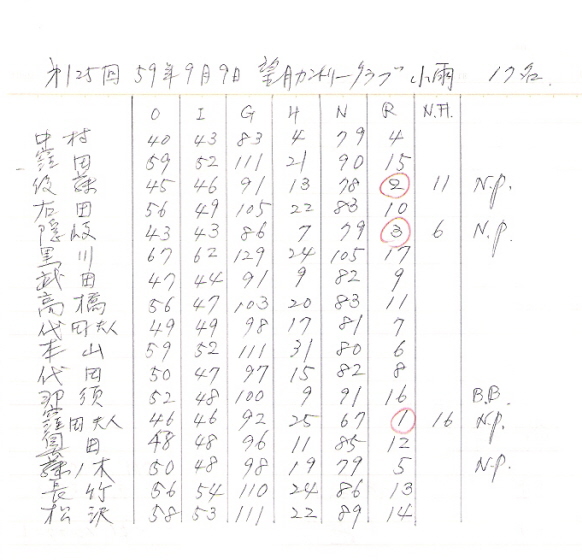 第125回 59年9月9日 望月カントリークラブ 小雨 17名.
O I G H N R N.H.
中村 40 43 83 4 79 4
窪田 59 52 111 21 90 15
後藤 45 46 91 13 78 2 11 N.P.
右田 56 49 105 22 83 10
隠岐 43 43 86 7 79 3 6 N.P.
黒川 67 62 129 24 105 17
武田 47 44 91 9 82 9
高橋 56 47 103 20 83 11
代田夫人 49 49 98 17 81 7
本山 59 52 111 31 80 6
代田 50 47 97 15 82 8
那須 52 48 100 9 91 16 B.B.
窪田夫人 46 46 92 25 67 1 16 N.P.
田 48 48 96 11 85 12
ノ木 50 48 98 19 79 5 N.P.
長竹 56 54 110 24 86 13
松沢 58 53 111 22 89 14